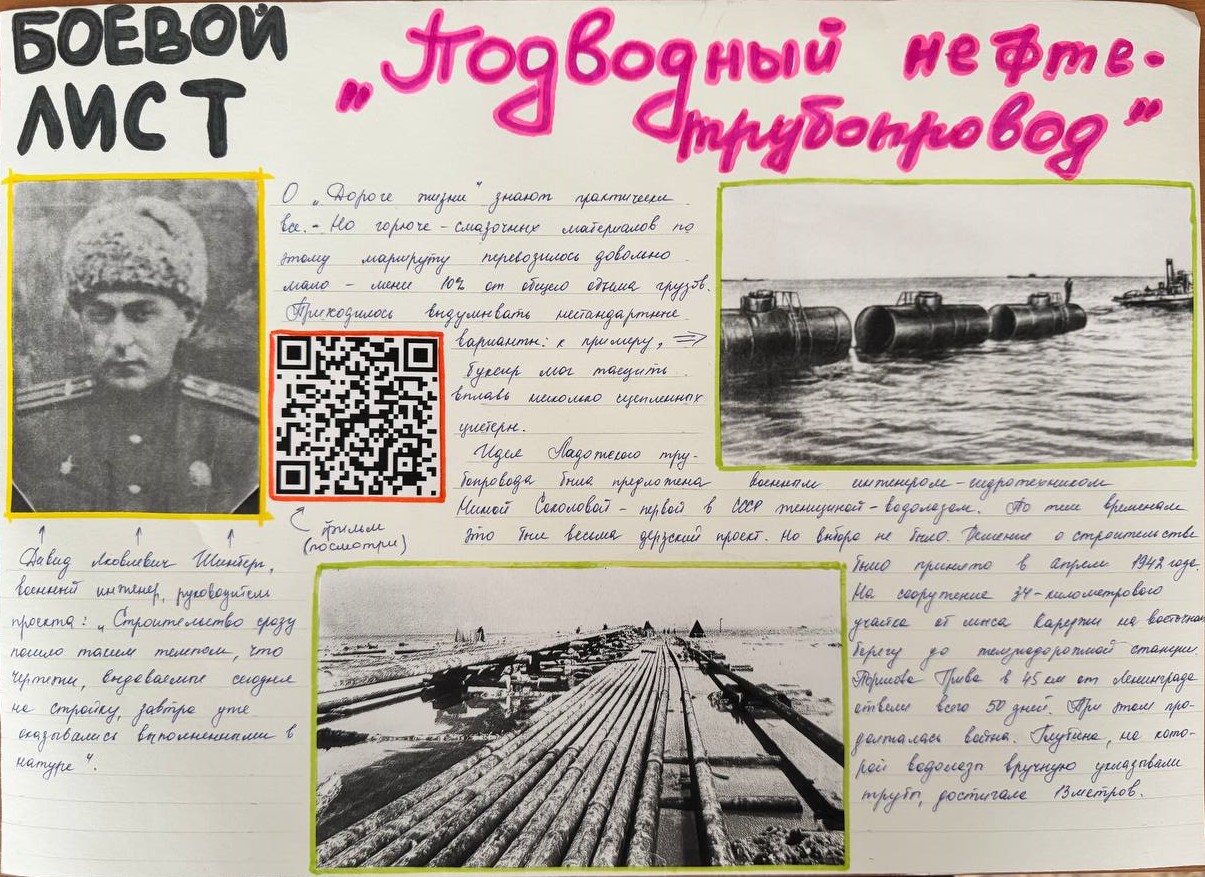 БОЕВОЙ
ЛИСТ
„Подводный нефте-
трубопровод"
О „Дороге жизни" знают практически
все. - Но горюче-смазочных материалов по
этому маршруту перевозилось довольно
мало - мене 10% от общего объема грузов.
Приходилось выдумывать нестандартные
варианты: к примеру, ⇒
буксир мог тащить
вплавь несколько сцепленных
цистерн.
Идея Ладожского тру-
бопровода была предложена военным инженером-гидротехником
Ниной Соколовой - первой в СССР женщиной-водолазом. По тем временам
это был весьма дерзский проект. Но выбора не было. Решение о строительстве
было принято в апреле 1942 года.
На сооружение 34-километрового
участка от мыса Кареджи на восточном
берегу до железнодорожной станции
Борисова Грива в 45 км от Ленинграда
отвели всего 50 дней. При этом про-
должалась война. Глубина, на кото-
рой водолазы вручную укладывали
трубы, достигала 13 метров.
фильм
(посмотри)
Давид Яковлевич Шинберг,
военный инженер, руководитель
проекта: „Строительство сразу
пошло таким темпом, что
чертежи, выдаваемые сегодня
на стройку, завтра уже
оказывались выполненными в
натуре".